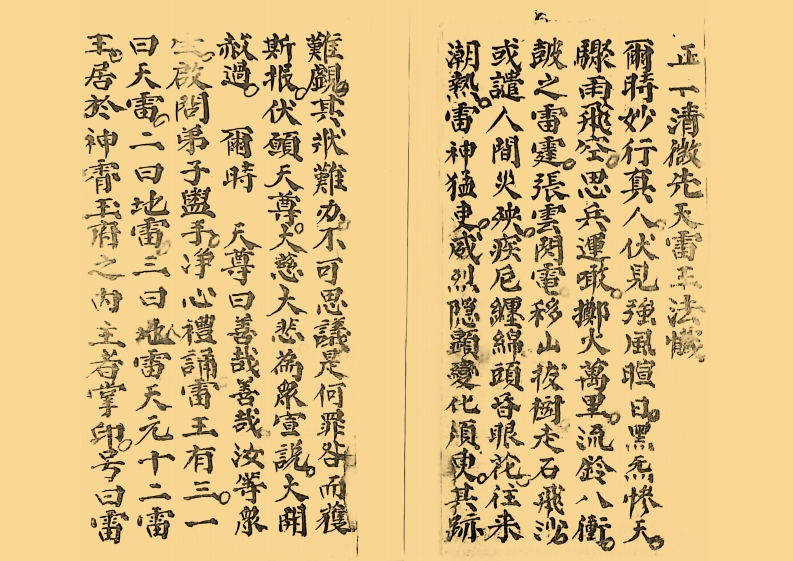 正一清微先天雷王法懺
爾時妙行真人伏見強風暄日黑炁慘天
驟雨飛空思兵運噉擲火萬里流鈴八衝
皷之雷霆張雲閃電移山拔樹走石飛沙
或譴人間災殃疾厄纏綿頭昏眼花往来
潮熱雷神猛吏威烈隐顯變化須臾其跡
難覷其狀難办不可思議是何罪咎而獲
斯报伏願天尊大慈大悲為衆宣説大開
赦過　爾時　天尊曰善哉善哉汝等衆
生啟問弟子盥手淨心禮誦雷王有三一
曰天雷二曰地雷三曰地雷天元十二雷
王居於神霄玉府之內主者掌印号曰雷